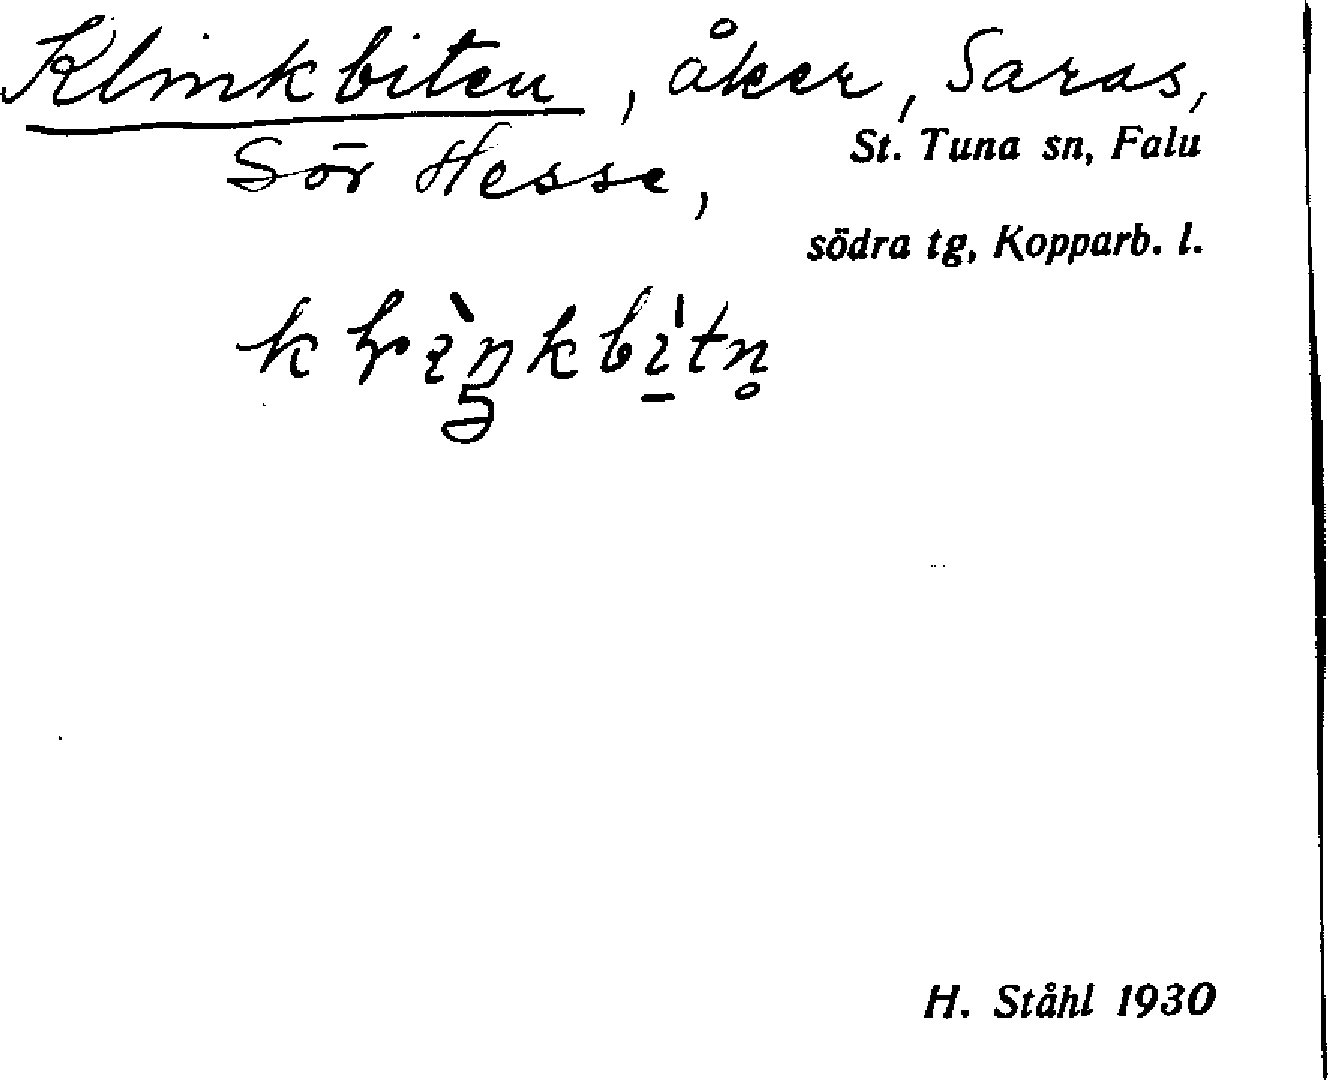 Klinkbiten, åker, Saras,
St. Tuna sn, Falu
Sör Hesse,
södra tg, Kopparb. l.
H. Ståhl 1930